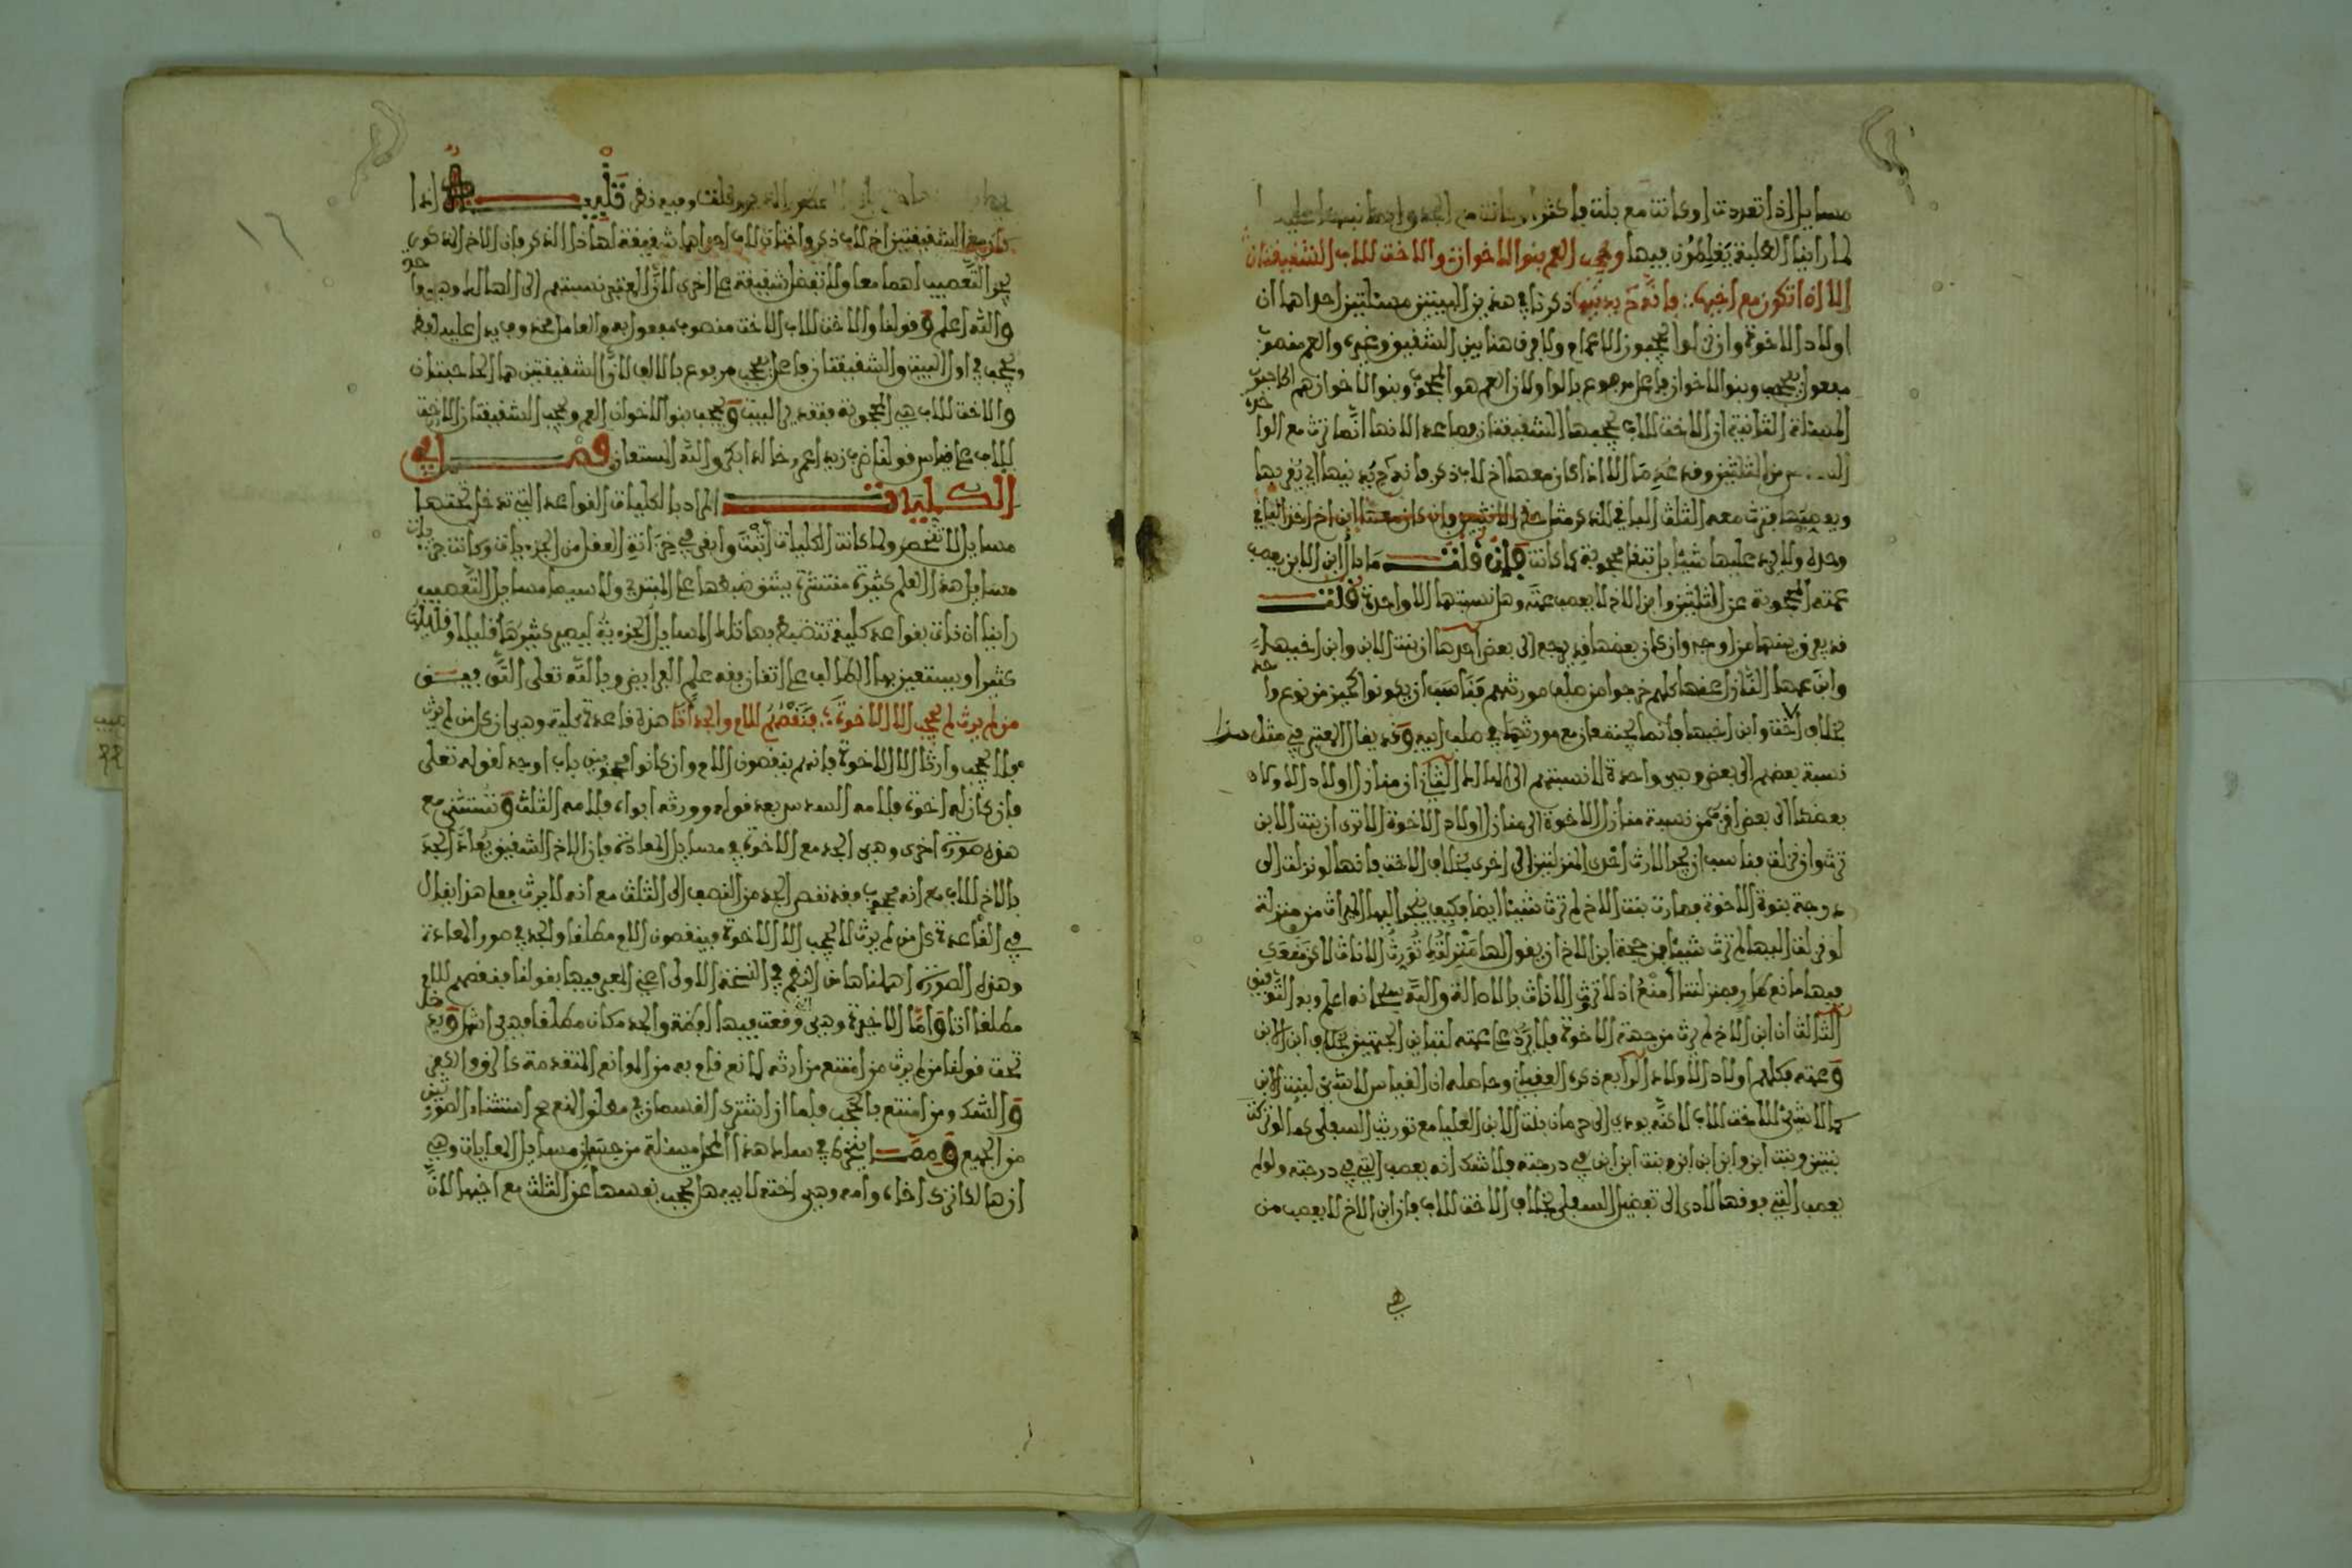 مسايل اذا تعددت او كانت مع بنت فاكثر او كانت مع الجد وانما نبهنا عليه
لما راينا الطلبة يغلطون فيها ويحجب العم بنوا الاخوان والاخت للاب الشقيقتان
الا اذا تكون مع اخيها فانه يدنيها ذكرنا في هذين البيتين مسئلتين احداهما ان
اولاد الاخوة وان نزلوا يحجبون الاعمام ولا فرق هنا بين الشقيق وغيره والعم منصوب
مفعول يحجب وبنوا الاخوان فاعل مرفوع بالواو لان العم هو المحجوب وبنوا الاخوان هم الحاجبون
المسئلة الثانية ان الاخت للاب يحجبها الشقيقتان فصاعدا لانها انما ترث مع الواحدة
السدس من الثلثين وقد عدما الا اذا كان معها اخ لاب ذكر فانه يدنيها اي يقربها
ويعصبها فترث معه الثلث الباقي للذكر مثل حظ الانثيين وان كان معها ابن اخ اخذ الباقي
وحده ولا يرد عليها شيئا بل تبقا محجوبة كما كانت فان قلت ما بال ابن الابن يعصب
عمته المحجوبة عن الثلثين وابن الاخ لا يعصب عمته وهل نسبتهما الا واحدة قلت
قد يفرق بينهما من اوجه وان كان بعضها قد يرجع الى بعض احدها ان بنت الابن وابن اخيها
وابن عمها النازل عنها كلهم خرجوا من صلب مورثهم فناسب ان يكونوا كحيز من نوع واحد
بخلاف اخت وابن اخيها فانما يجتمعان مع مورثهما في صلب ابيه وقد يقال المعتبر في مثل هذا
نسبة بعضهم الى بعض وهي واحدة لا نسبتهم الى الهالك الثاني ان منازل اولاد الاولاد
بعضها الى بعض اقرب من نسبة منازل الاخوة الى منازل اولاد الاخوة الا ترى ان بنت الابن
ترث وان نزلت فناسب ان يجر الارث احدى المنزلتين الى اخرى بخلاف الاخت فانها لو نزلت الى
درجة بنوة الاخوة فصارت بنت الاخ لم ترث شيئا ايضا فكيف يجر اليها الميراث من منزلة
لو نزلت اليها لم ترث شيئا فمن حجة ابن الاخ ان يقول لها منزلتي لا تورث الاناث لان مقعدي
فيها مانع كما ر فمنزلتنا امنع اذ لا ترث الاناث بالاصالة والله سبحانه اعلم وبه التوفيق
الثالث ان ابن الاخ لم يرث من جهة الاخوة فلا يرد على عمته لتباين الجهتين بخلاف ابن الابن
وعمته فكلهم اولاد الاولاد الرابع ذكره العقباني وحاصله ان القياس لا شيء لبنت الابن
كما لا شيء للاخت للاب لاكنه يودي الى حرمان بنت الابن العليا مع توريث السفلى كما لو ترك
بنتين وبنت ابن وابن ابن ابن وبنت ابن ابن في درجته فلا شك انه يعصب التي في درجته ولو لم
يعصب التي فوقها لادى الى تفضيل السفلى بخلاف الاخت للاب فان ابن الاخ لا يعصب من
هي
قلت وفيه نظر تنبيه اذا
كان مع الشقيقتين اخ لاب ذكر واختان لاب احداهما شقيقة لهذا الذكر فان الاخ المذكور
يجر التعصيب لهما معا ولا تفضل شقيقة على اخرى لان المعتبر نسبتهم الى الهالك وهي واحدة
والله اعلم وقولنا والاخت للاب الاخت منصوب مفعول به والعامل محذوف يدل عليه لفظ
يحجب في اول البيت والشقيقتان فاعل يحجب مرفوع بالالف لان الشقيقتين هما الحاجبتان
والاخت للاب هي المحجوبة فتقدير البيت ويحجب بنو الاخوان العم ويحجب الشقيقتان الاخت
للاب على قياس قولنا ضرب زيد اعمر وخالدا بكر والله المستعان فصل في
الكليات المراد بالكليات القواعد التي تدخل تحتها
مسايل لا تنحصر ولما كانت الكليات اثبت وابقى في خزانة العقل من الجزءيات وكانت جزئيات
مسايل هذا العلم كثيرة منتشرة يشق ضبطها على المبتدي ولا سيما مسايل التعصيب
راينا ان ناتي بقواعد كلية تنضبط بها تلك المسايل الجزءية ليصير كثيرها قليلا وقليلها
كثيرا ويستعين بها الطالب على اتقان فقه علم الفرايض وبالله تعلى التوفيق
من لم يرث لم يحجب الا الاخوة فنقصهم للام والجد اتا هذه قاعدة كلية وهي ان كل من لم يرث
فلا يحجب وارثا الا الاخوة فانهم ينقصون الام وان كانوا محجوبين باب اوجد لقوله تعلى
فان كان له اخوة فلامه السدس بعد قوله وورثه ابواه فلامه الثلث وتستثنى مع
هذه صورة اخرى وهي الجد مع الاخوة في مسايل المعادة فان الاخ الشقيق يعاد الجد
بالاخ للاب مع انه محجوب فقد نقص الجد من النصف الى الثلث مع انه لا يرث فعلى هذا يقال
في القاعدة كل من لم يرث لا يحجب الا الاخوة فينقصون الام مطلقا والجد في صور المعادة
وهذه الصورة اهملناها من النظم في النسخة الاولى اعني المعبر فيها بقولنا فنقصهم للام
مطلقا اتا واما الاخيرة وهي وقعت فيها لفظة والجد مكان مطلقا فهي اتم ويدخل
تحت قولنا من لم يرث من امتنع من ارثه لمانع قام به من الموانع المتقدمة كالرق والكفر
والشك ومن امتنع بالحجب فلما ان اشترك القسمان في مطلق المنع صح استثناء الصورتين
من الجميع ومما ينخرط في سلك هذا المحل مسئلة من حسان مسايل المعايات وهي
ان هالكا ترك اخاه وامه وهي اخته لابيه هل يحجب نفسها عن الثلث مع اخيها لان